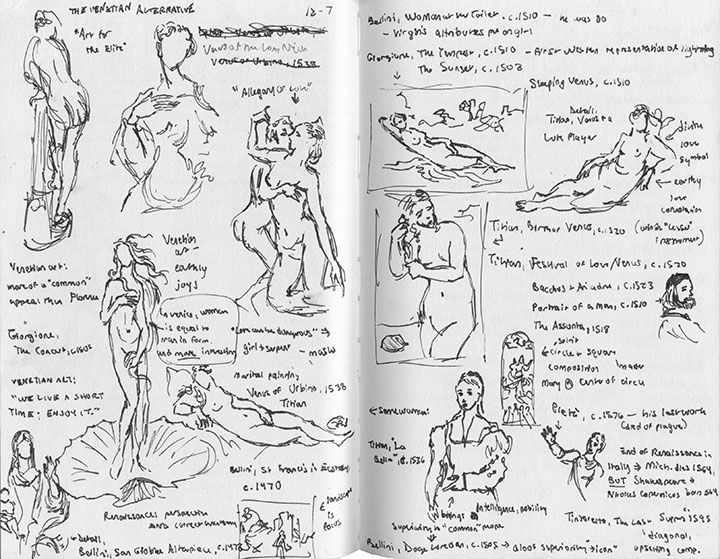 THE VENETIAN ALTERNATIVE
12-7
"Art for
the Elite"
Venus of Urbino, 1538
"Allegory of Love"
Venetian
art -
earthly
joys
Venetian art:
more of a "common"
appeal than Florence
Giorgione,
The Concert, c.1505
VENETIAN ALT:
"WE LIVE A SHORT
TIME: ENJOY IT."
In Venice, women
is equal to
man in form,
and more interesting
"can be dangerous" →
girl + super
marital painting
Venus of Urbino, 1538
Titian
Bellini, St Francis in Ecstasy
c. 1470
← landscape
is
focus
Renaissance
and
← detail,
Bellini, San Giobbe Altarpiece, c.1478
Bellini, Woman at her Toilet, c.1510 — he was 80
- Virgin's attributes
Giorgione, The Tempest, c.1510 - First Western representation of lightning
The Sunset, c.1503
Sleeping Venus, c.1510
Detail,
Titian, Venus + a
Lute Player
divine
love
symbol
← earthly
love
Titian, Venus, c.1520
Titian, Festival of Love/Venus, c.1520
Bacchus + Ariadne, c.1523
Portrait of a man, c.1510
The Assunta, 1518
circle + square
composition
Mary @ center of circle
← same woman!
Titian, "La
Bella", c.1536
Pietà, c.1576 - his last work
(and of plague)
End of Renaissance in
Italy → Mich. dies 1564,
BUT Shakespeare +
Copernicus born 1564
beings
Intelligence, nobility
Superiority to "common" man
Tintoretto, The Last Supper 1595
diagonal,
upsetting comp.
Bellini, Doge Loredan, c.1505 → aloof superiority "icon"